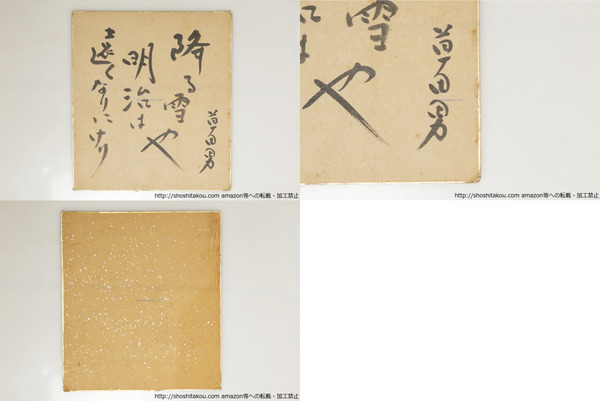 降る雪や
明治は
遠くなりにけり
草田男
http://shoshitakou.com amazon等への転載・加工禁止
雪や
治は
草田男
http://shoshitakou.com amazon等への転載・加工禁止
http://shoshitakou.com amazon等への転載・加工禁止